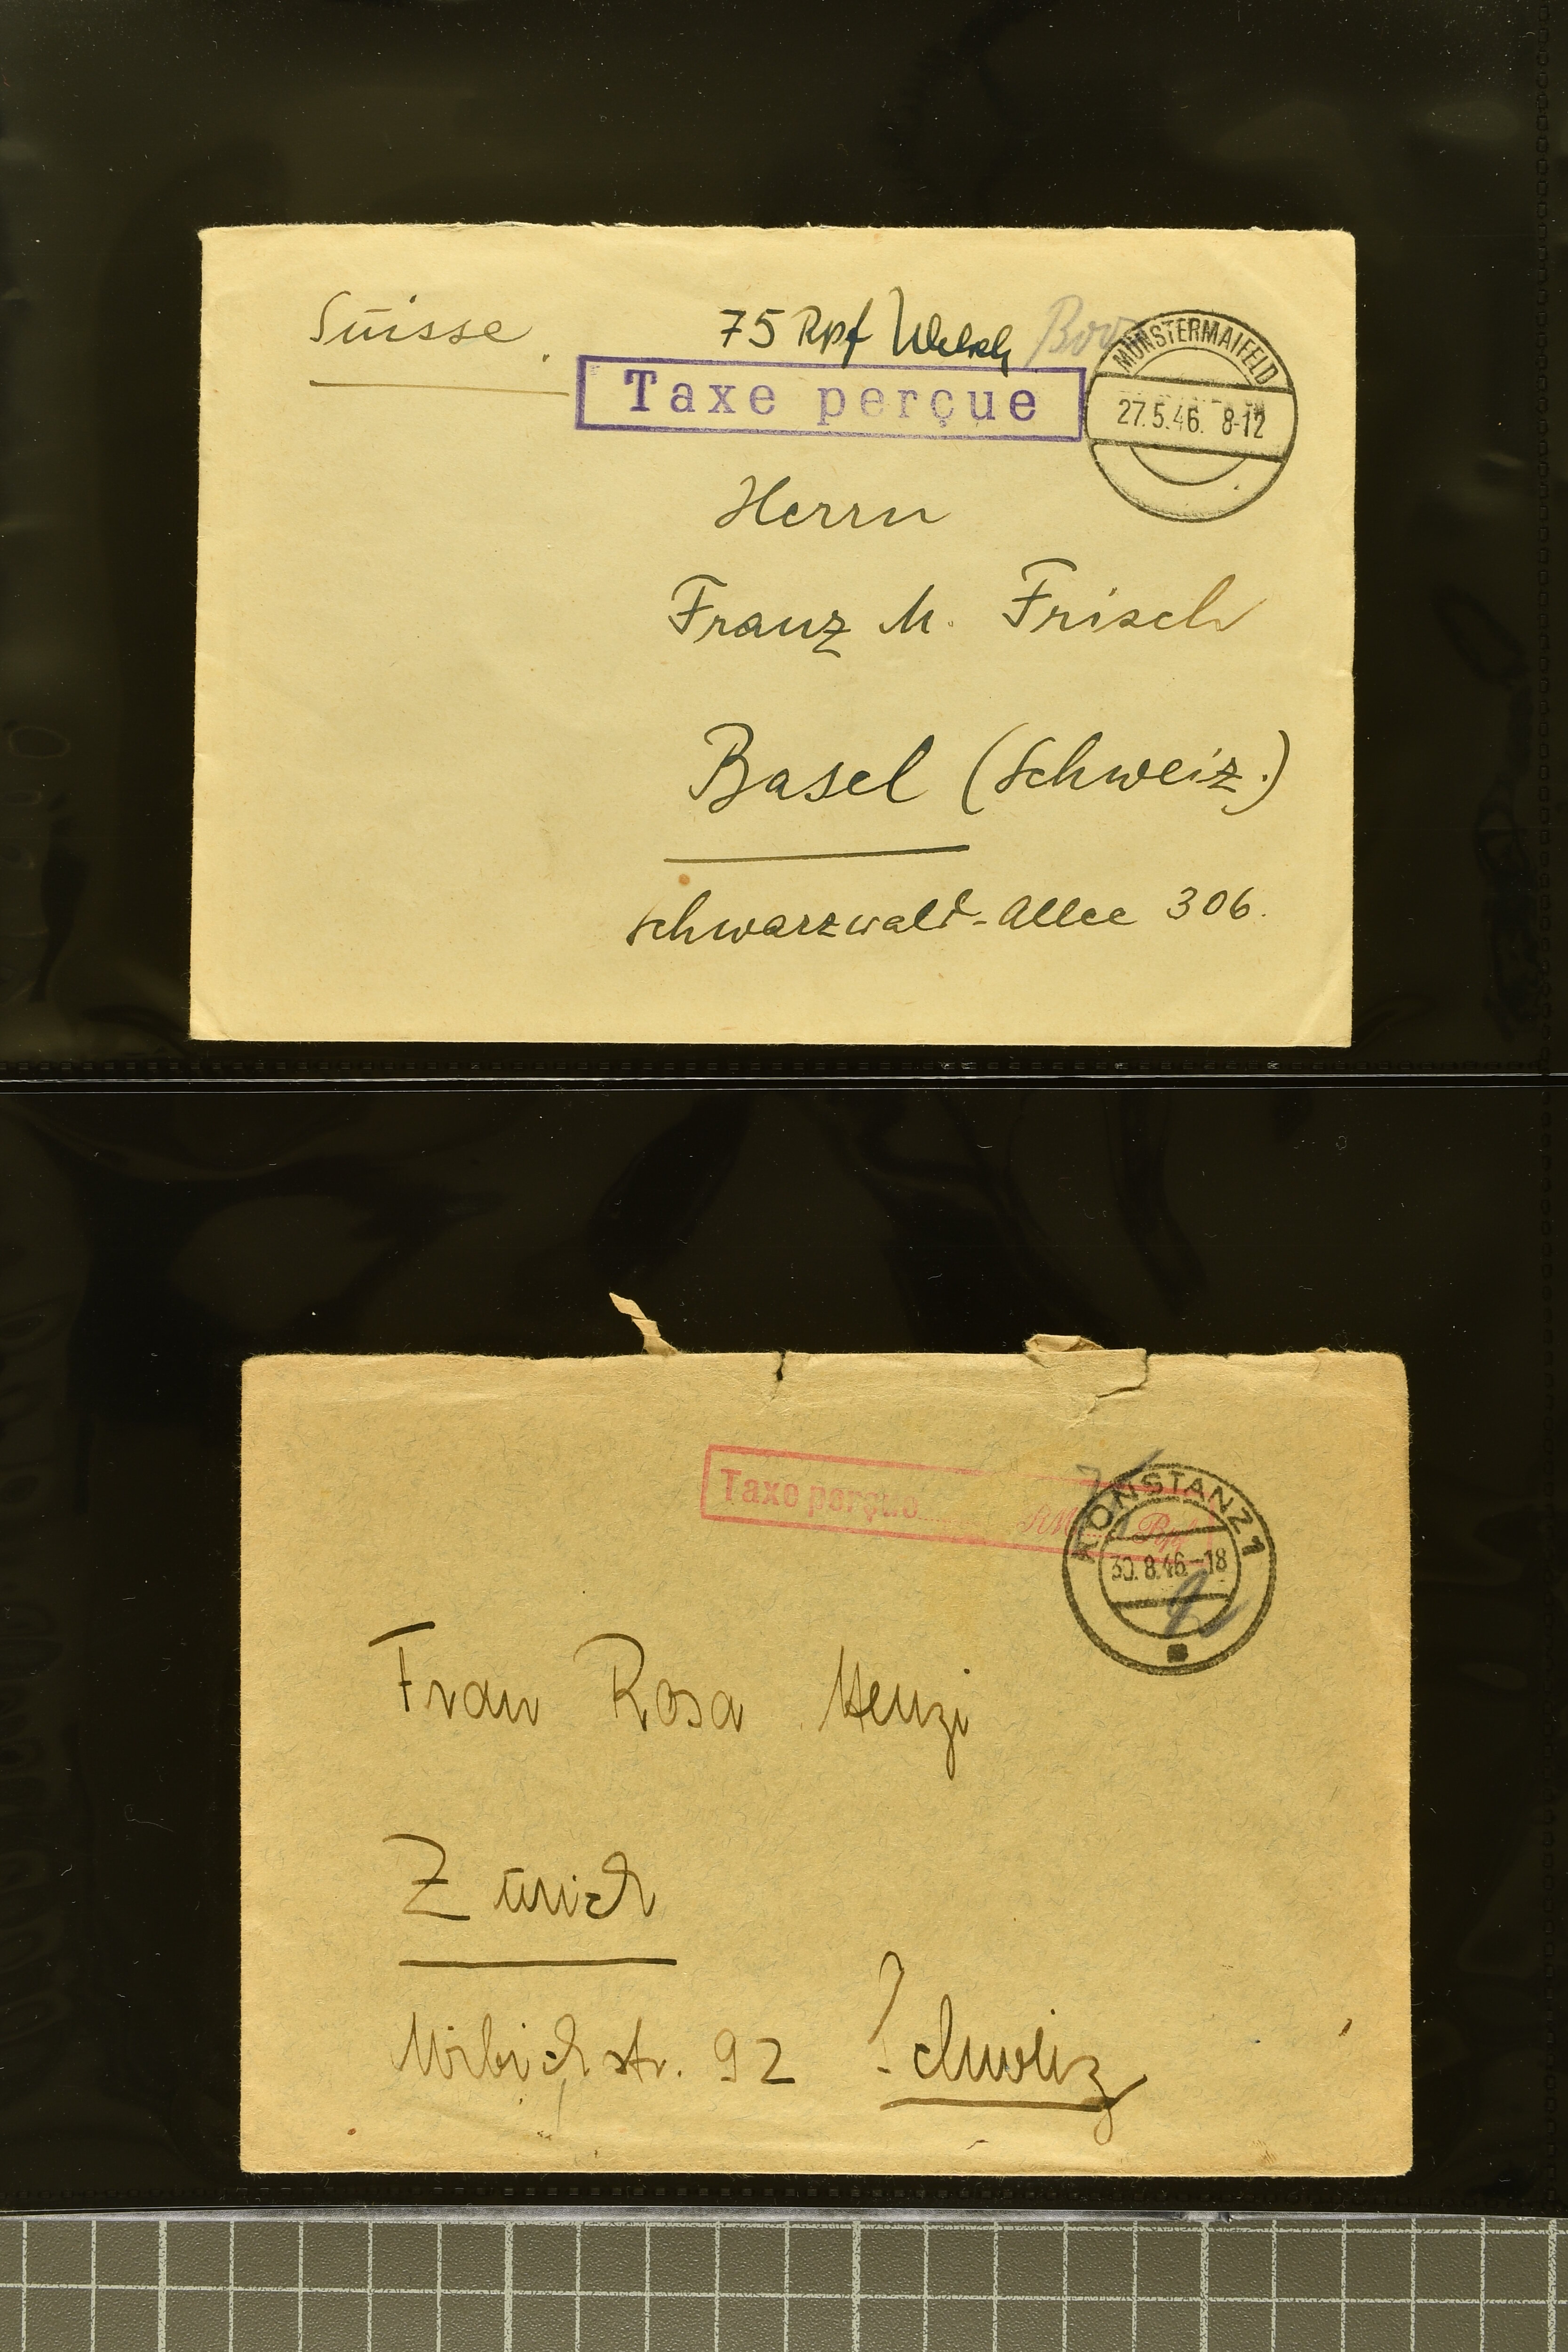 Suisse.
75 Rpf
Taxe perçue
MÜNSTERMAIFELD
27.5.46. 8-12
Herrn
Franz M. Frisch
Basel (Schweiz.)
Schwarzwald-Allee 306.
Taxe perçue RM Rpf
KONSTANZ 1
30.8.46.-18
Frau Rosa Henzi
Zürich
str. 92 Schweiz